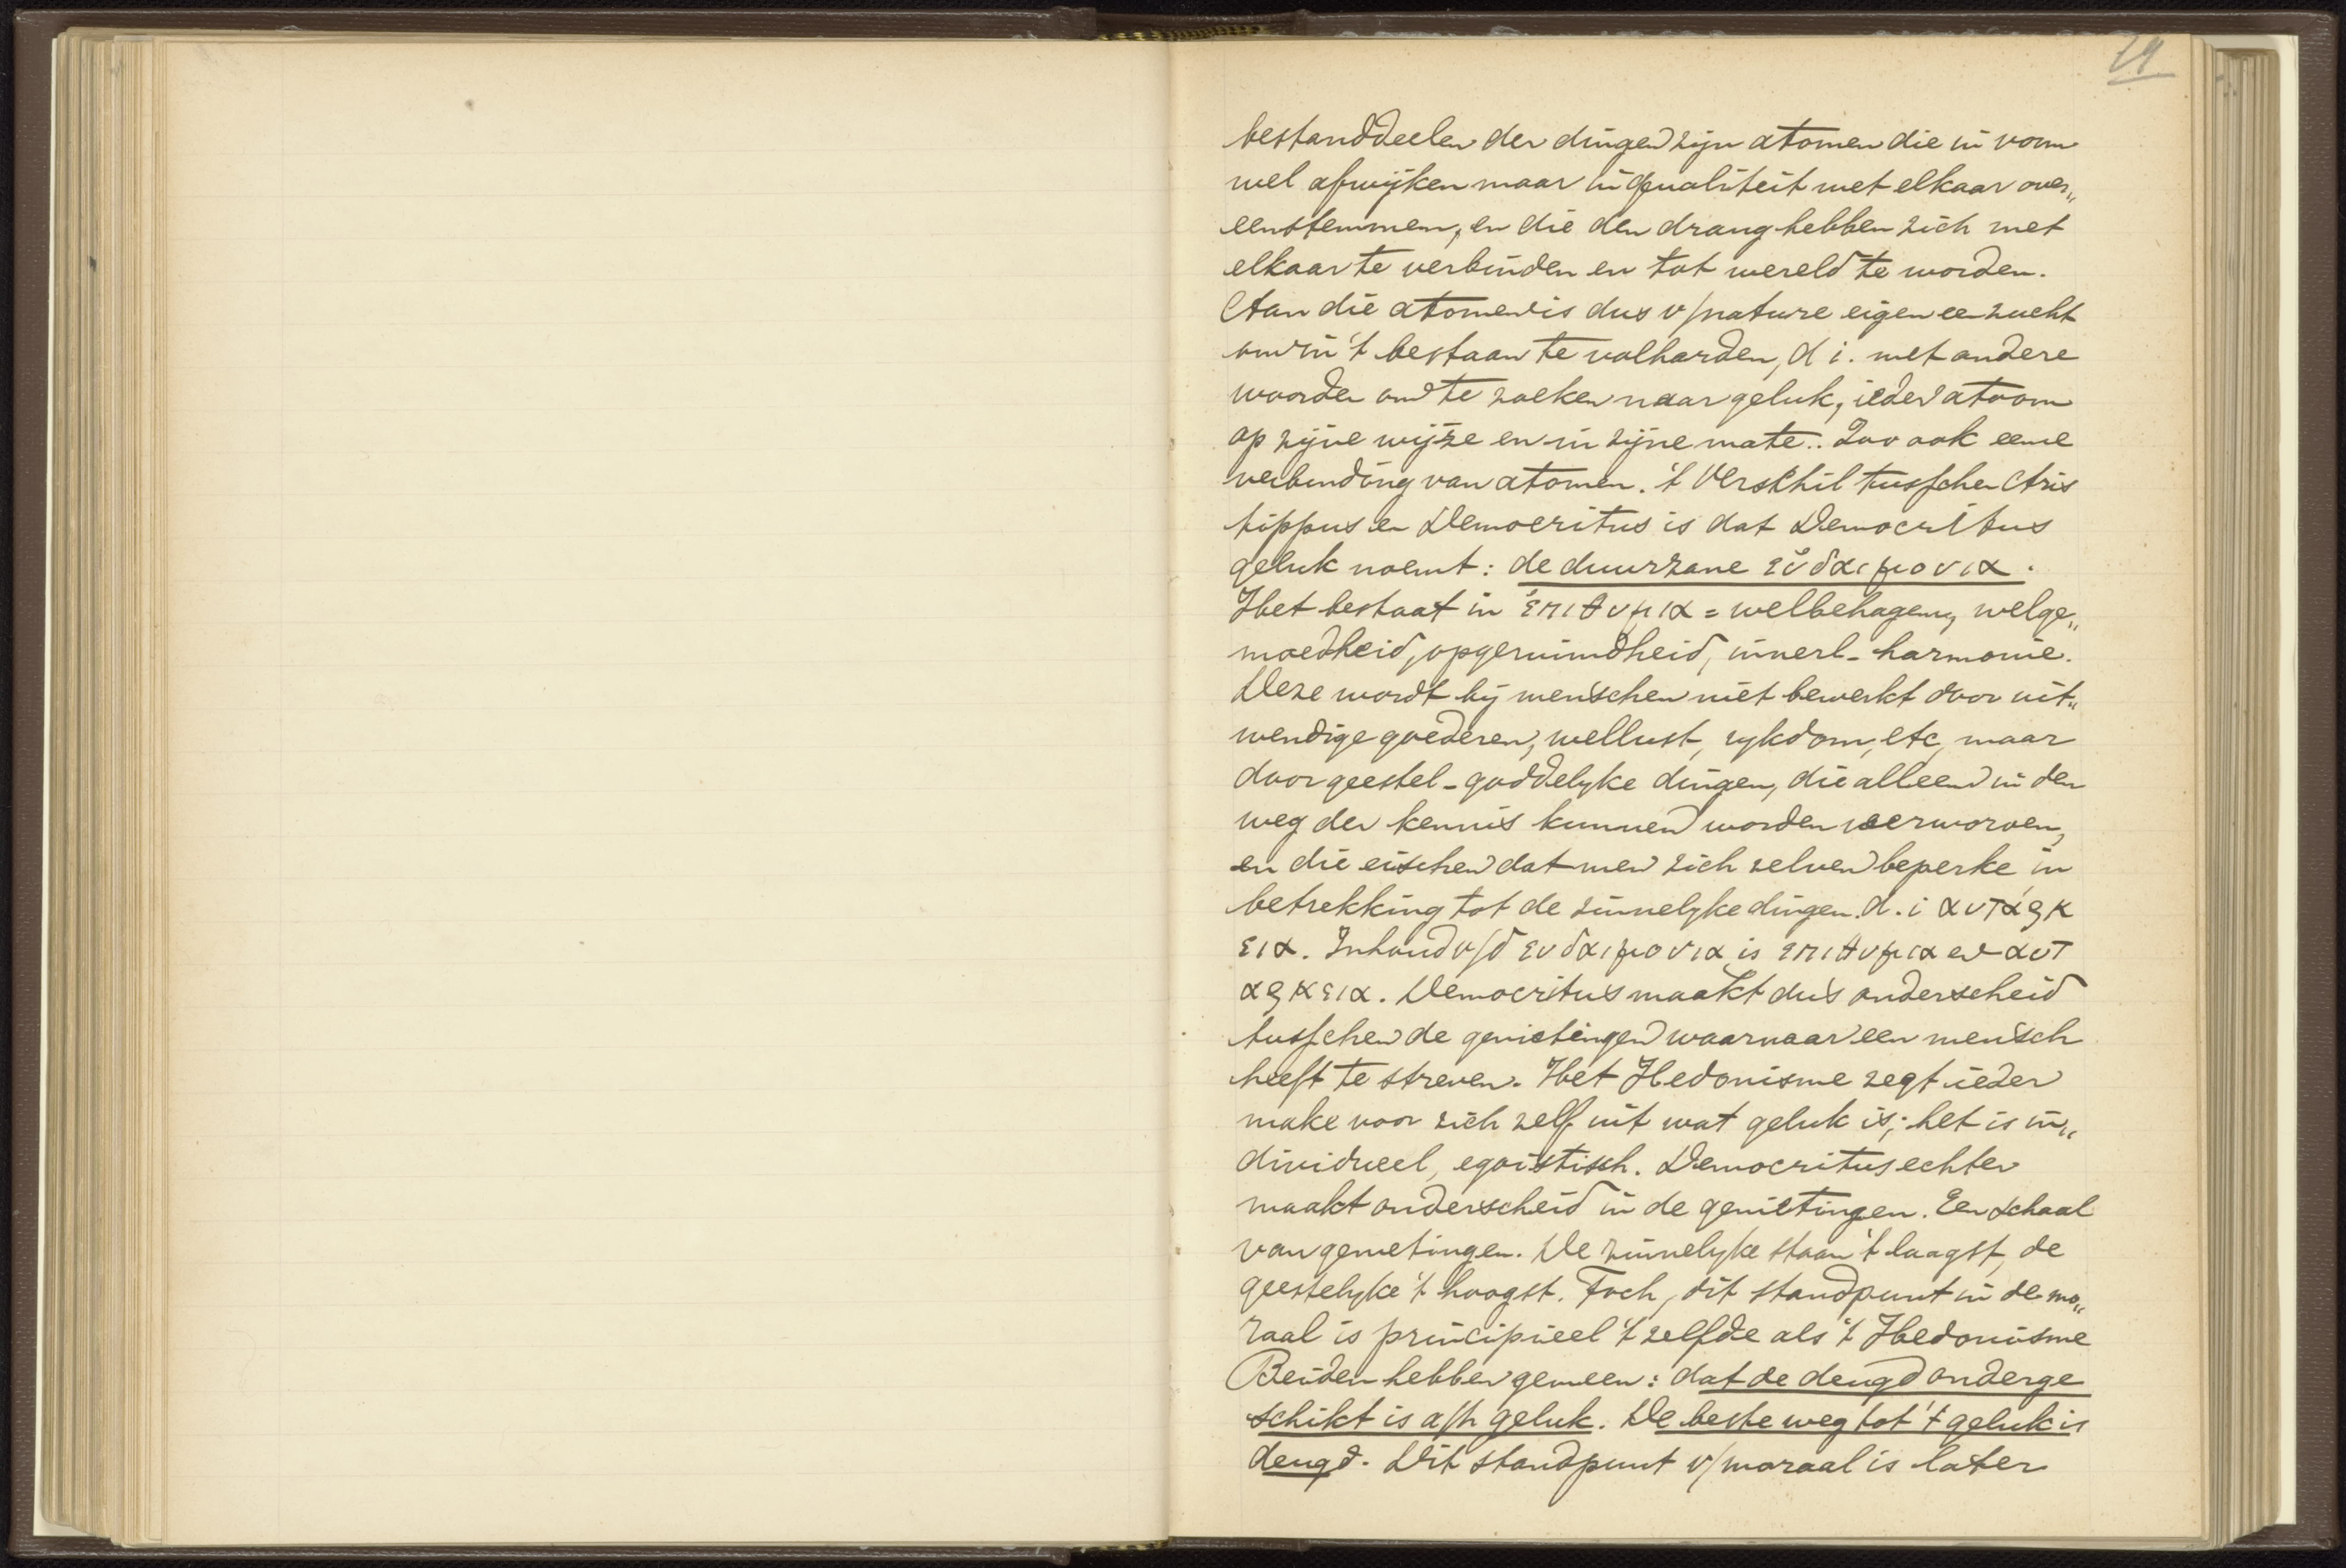 bestanddeelen der dingen zijn atomen die in vorm
wel afwijken maar in qualiteit met elkaar over„
eenstemmen, en die den drang hebben zich met
elkaar te verbinden en tot wereld te worden.
Aan die atomen is dus v/nature eigen een zucht
om in 't bestaan te volharden, d i. met andere
woorden om te zoeken naar geluk, ieder atoom
op zijne wijze en in zijne mate.. Zoo ook eene
verbinding van atomen. 't Verschil tusschen Aris
tippus en Democritus is dat Democritus
geluk noemt: de duurzame εὐδαιμονια.
Het bestaat in ἐπιθυμια = welbehagen, welge„
moedheid, opgeruimdheid, innerl- harmonie.
Deze wordt bij menschen niet bewerkt door uit„
wendige goederen, wellust, rykdom, etc, maar
door geestel- goddelyke dingen, die alleen in den
weg der kennis kunnen worden verworven,
en die eischen dat men zich zelven beperke in
betrekking tot de zinnelyke dingen. d. i αυτάρκ
εια. Inhoud v/d ευδαιμονια is επιθυμια en αυτ
αρκεια. Democritus maakt dus onderscheid
tusschen de genietingen waarnaar een mensch
heeft te streven. Het Hedonisme zegt ieder
make voor zich zelf uit wat geluk is; het is in„
dividueel, egoistisch. Democritus echter
maakt onderscheid in de genietingen. Een schaal
van genietingen. De zinnelyke staan 't laagst, de
geestelyke 't hoogst. Toch, dit standpunt in de mo„
raal is principieel 't zelfde als 't Hedonisme
Beiden hebben gemeen: dat de deugd onderge
schikt is a/h geluk. De beste weg tot 't geluk is
deugd. Dit standpunt v/moraal is later